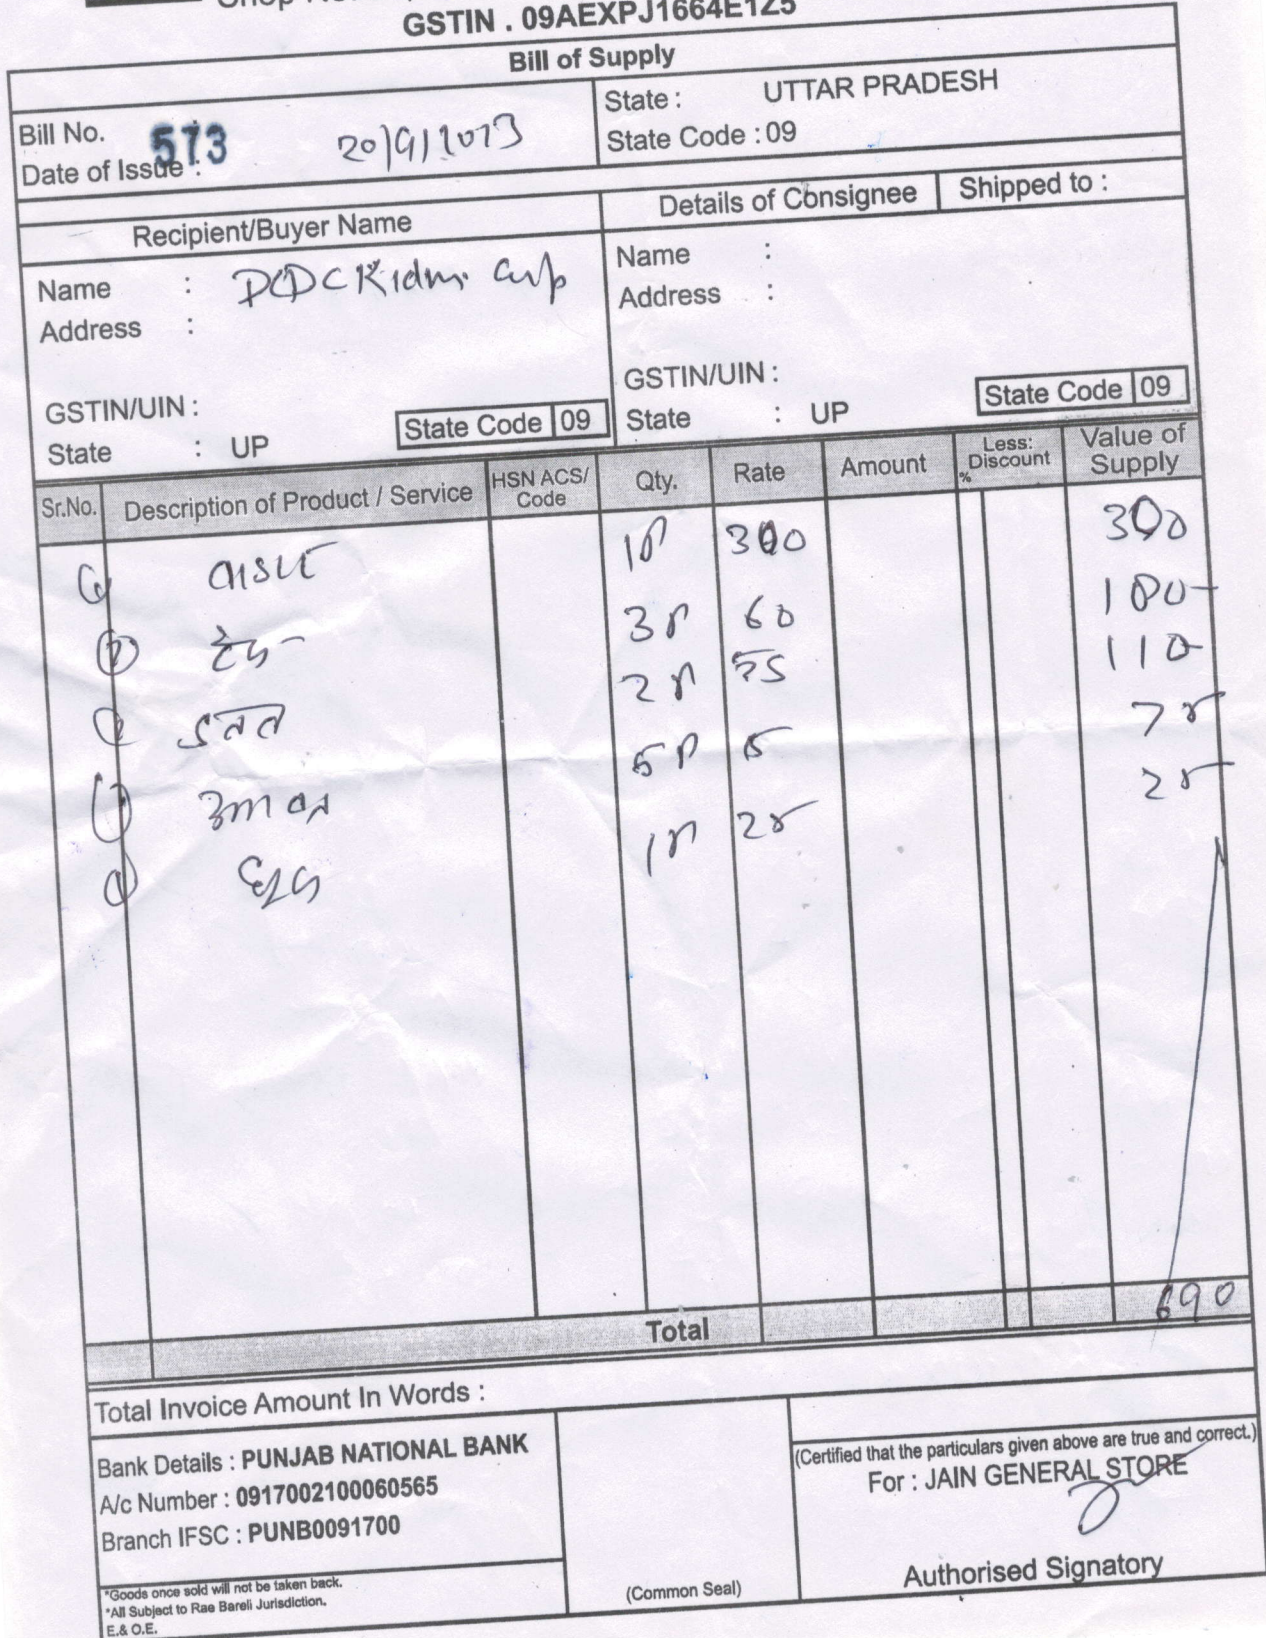 GSTIN . 09AEXPJ1664E1Z5
Bill of Supply
Bill No. 573
Date of Issue : 20/9/2023
State : UTTAR PRADESH
State Code : 09
Recipient/Buyer Name
Details of Consignee Shipped to :
Name : DCDC Kidney
Address :
GSTIN/UIN :
State : UP State Code 09
Name :
Address :
GSTIN/UIN :
State : UP State Code 09
Sr.No. Description of Product / Service HSN ACS/ Code Qty. Rate Amount Less: Discount % Value of Supply
1P 300 300
3P 60 180
2P 55 110
5P 75
1P 25 25
Total 690
Total Invoice Amount In Words :
Bank Details : PUNJAB NATIONAL BANK
A/c Number : 0917002100060565
Branch IFSC : PUNB0091700
*Goods once sold will not be taken back.
*All Subject to Rae Bareli Jurisdiction.
E.& O.E.
(Common Seal)
(Certified that the particulars given above are true and correct.)
For : JAIN GENERAL STORE
Authorised Signatory